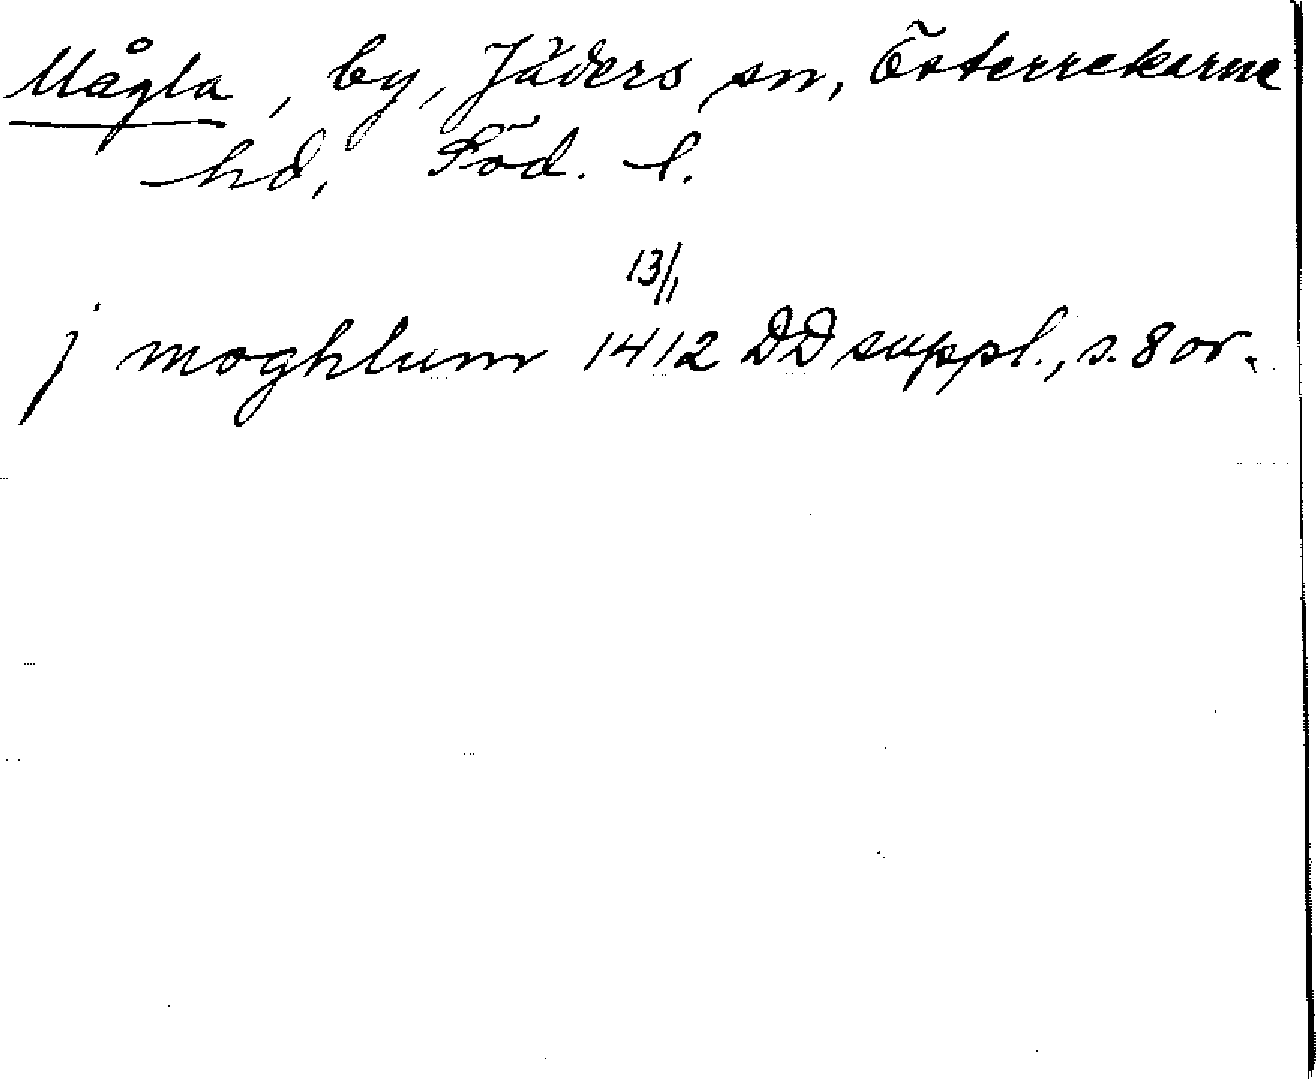 Mågla, by, Jäders sn, Österrekarne
hd, Söd. l.
13/1
j moghlum 1412 DD suppl., s. 8 or.